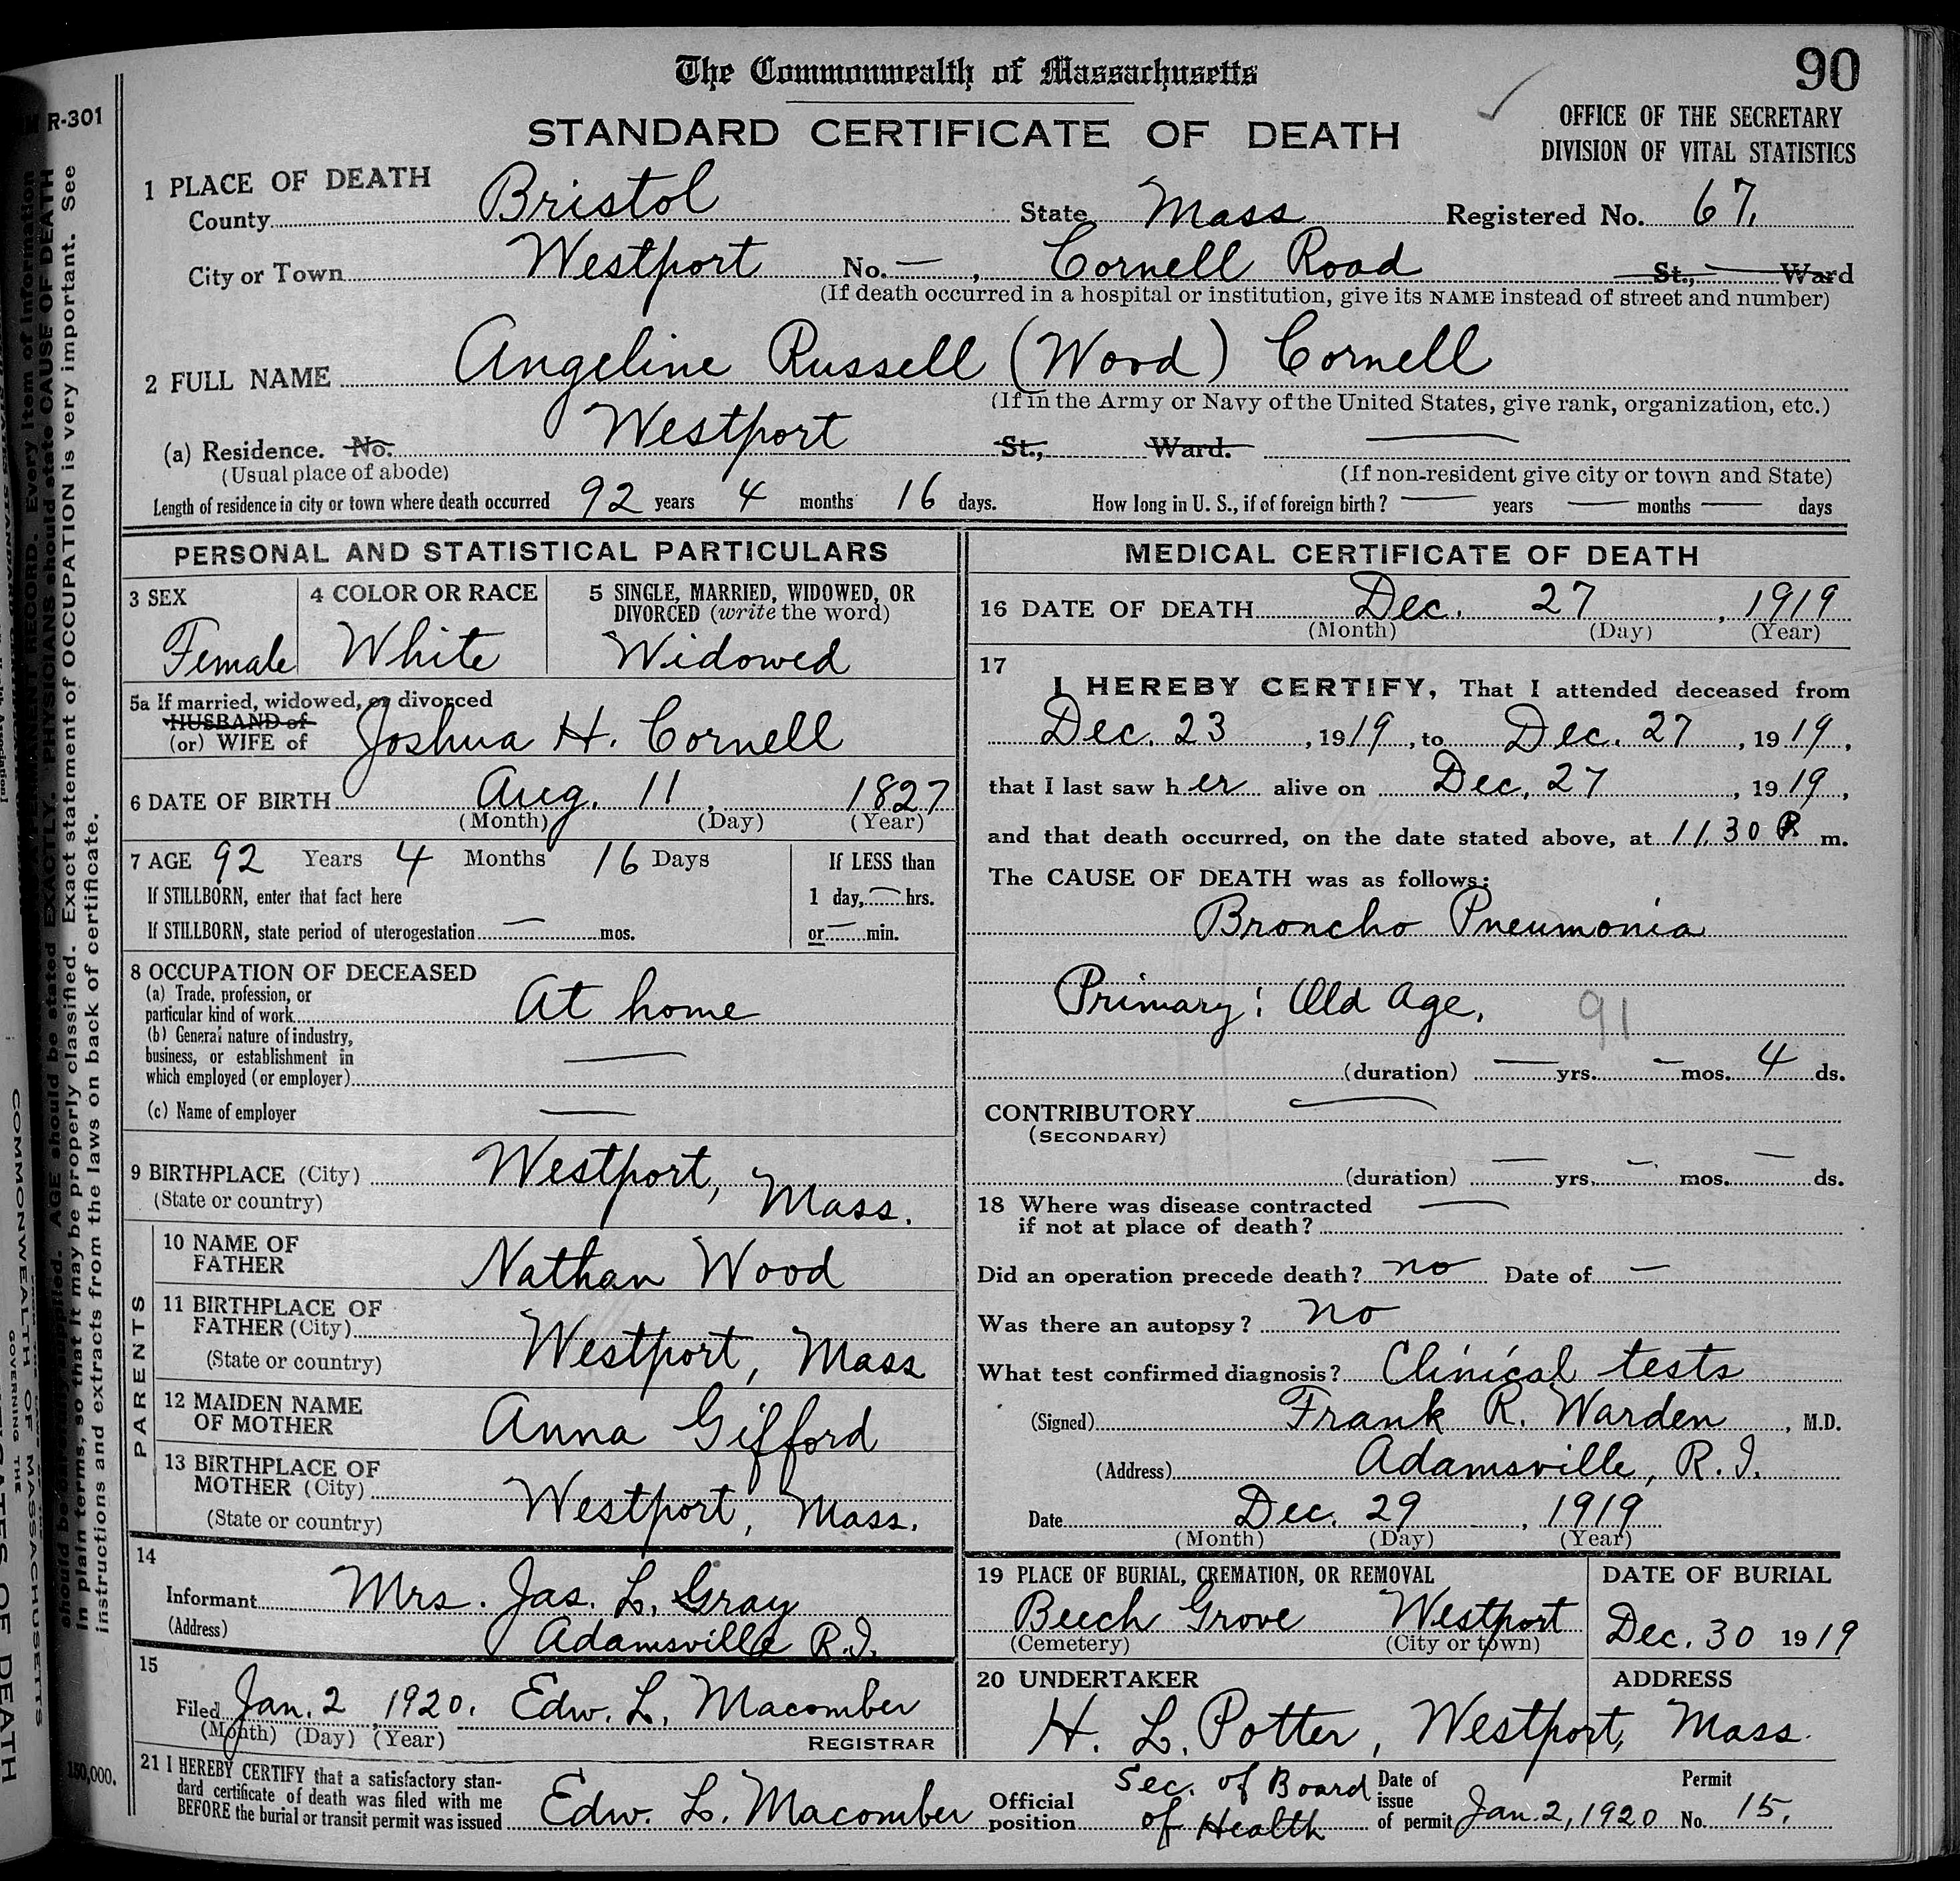 The Commonwealth of Massachusetts
90
STANDARD CERTIFICATE OF DEATH
OFFICE OF THE SECRETARY
DIVISION OF VITAL STATISTICS
R-301
1 PLACE OF DEATH
County Bristol State Mass Registered No. 67.
City or Town Westport No. — , Cornell Road St., Ward
(If death occurred in a hospital or institution, give its NAME instead of street and number)
2 FULL NAME Angeline Russell (Wood) Cornell
(If in the Army or Navy of the United States, give rank, organization, etc.)
(a) Residence. No. Westport St., Ward. —
(Usual place of abode) (If non-resident give city or town and State)
Length of residence in city or town where death occurred 92 years 4 months 16 days. How long in U. S., if of foreign birth? — years — months — days
PERSONAL AND STATISTICAL PARTICULARS
3 SEX
Female
4 COLOR OR RACE
White
5 SINGLE, MARRIED, WIDOWED, OR
DIVORCED (write the word)
Widowed
5a If married, widowed, or divorced
HUSBAND of
(or) WIFE of Joshua H. Cornell
6 DATE OF BIRTH Aug. 11, 1827
(Month) (Day) (Year)
7 AGE 92 Years 4 Months 16 Days
If STILLBORN, enter that fact here
If STILLBORN, state period of uterogestation — mos.
If LESS than
1 day, — hrs.
or — min.
8 OCCUPATION OF DECEASED
(a) Trade, profession, or
particular kind of work At home
(b) General nature of industry,
business, or establishment in
which employed (or employer) —
(c) Name of employer —
9 BIRTHPLACE (City) Westport,
(State or country) Mass.
PARENTS
10 NAME OF
FATHER Nathan Wood
11 BIRTHPLACE OF
FATHER (City)
(State or country) Westport, Mass
12 MAIDEN NAME
OF MOTHER Anna Gifford
13 BIRTHPLACE OF
MOTHER (City)
(State or country) Westport, Mass.
14
Informant Mrs. Jas. L. Gray
(Address) Adamsville R.I.
15
Filed Jan. 2, 1920. Edw. L. Macomber
(Month) (Day) (Year) REGISTRAR
MEDICAL CERTIFICATE OF DEATH
16 DATE OF DEATH Dec. 27, 1919
(Month) (Day) (Year)
17
I HEREBY CERTIFY, That I attended deceased from
Dec. 23, 1919, to Dec. 27, 1919,
that I last saw her alive on Dec. 27, 1919,
and that death occurred, on the date stated above, at 11.30 P. m.
The CAUSE OF DEATH was as follows:
Broncho Pneumonia
Primary: Old Age. 91
(duration) — yrs. — mos. 4 ds.
CONTRIBUTORY —
(SECONDARY)
(duration) — yrs. — mos. — ds.
18 Where was disease contracted
if not at place of death? —
Did an operation precede death? no Date of —
Was there an autopsy? no
What test confirmed diagnosis? Clinical tests
(Signed) Frank R. Warden, M.D.
(Address) Adamsville, R.I.
Date Dec. 29, 1919
(Month) (Day) (Year)
19 PLACE OF BURIAL, CREMATION, OR REMOVAL
Beech Grove Westport
(Cemetery) (City or town)
DATE OF BURIAL
Dec. 30 1919
20 UNDERTAKER ADDRESS
H. L. Potter, Westport, Mass.
21 I HEREBY CERTIFY that a satisfactory stan-
dard certificate of death was filed with me
BEFORE the burial or transit permit was issued Edw. L. Macomber
Official
position Sec. of Board
of Health
Date of
issue
of permit Jan. 2, 1920
Permit
No. 15.
Every item of information
should state CAUSE OF DEATH
Exact statement of OCCUPATION is very important. See
in plain terms, so that it may be properly classified.
instructions and extracts from the laws on back of certificate.
COMMONWEALTH OF MASSACHUSETTS
GOVERNING THE